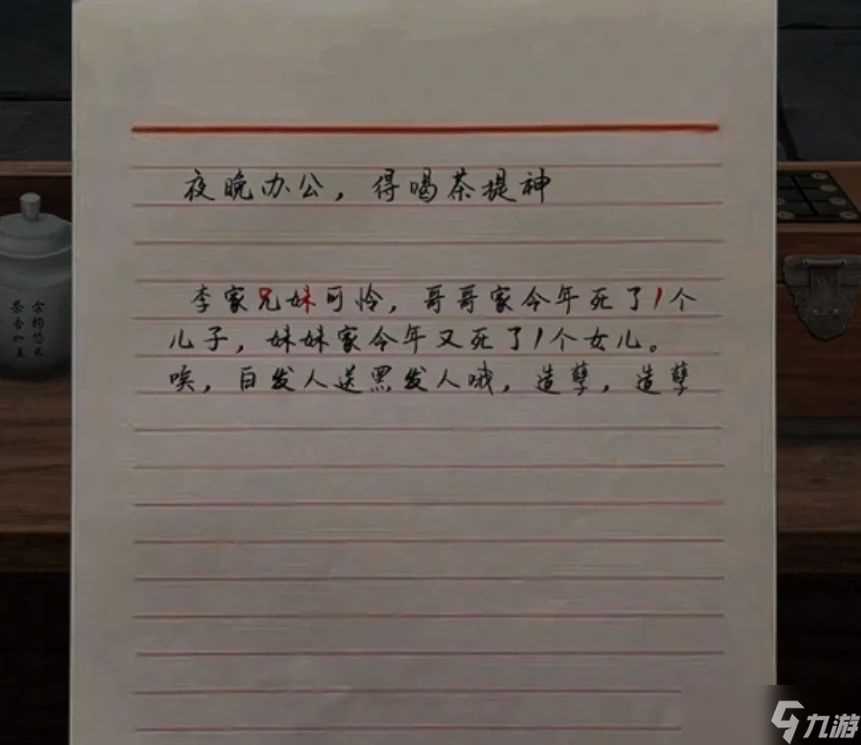 夜晚办公，得喝茶提神
李家兄妹可怜，哥哥家今年死了1个
儿子，妹妹家今年又死了1个女儿。
唉，白发人送黑发人哦，造孽，造孽
九游